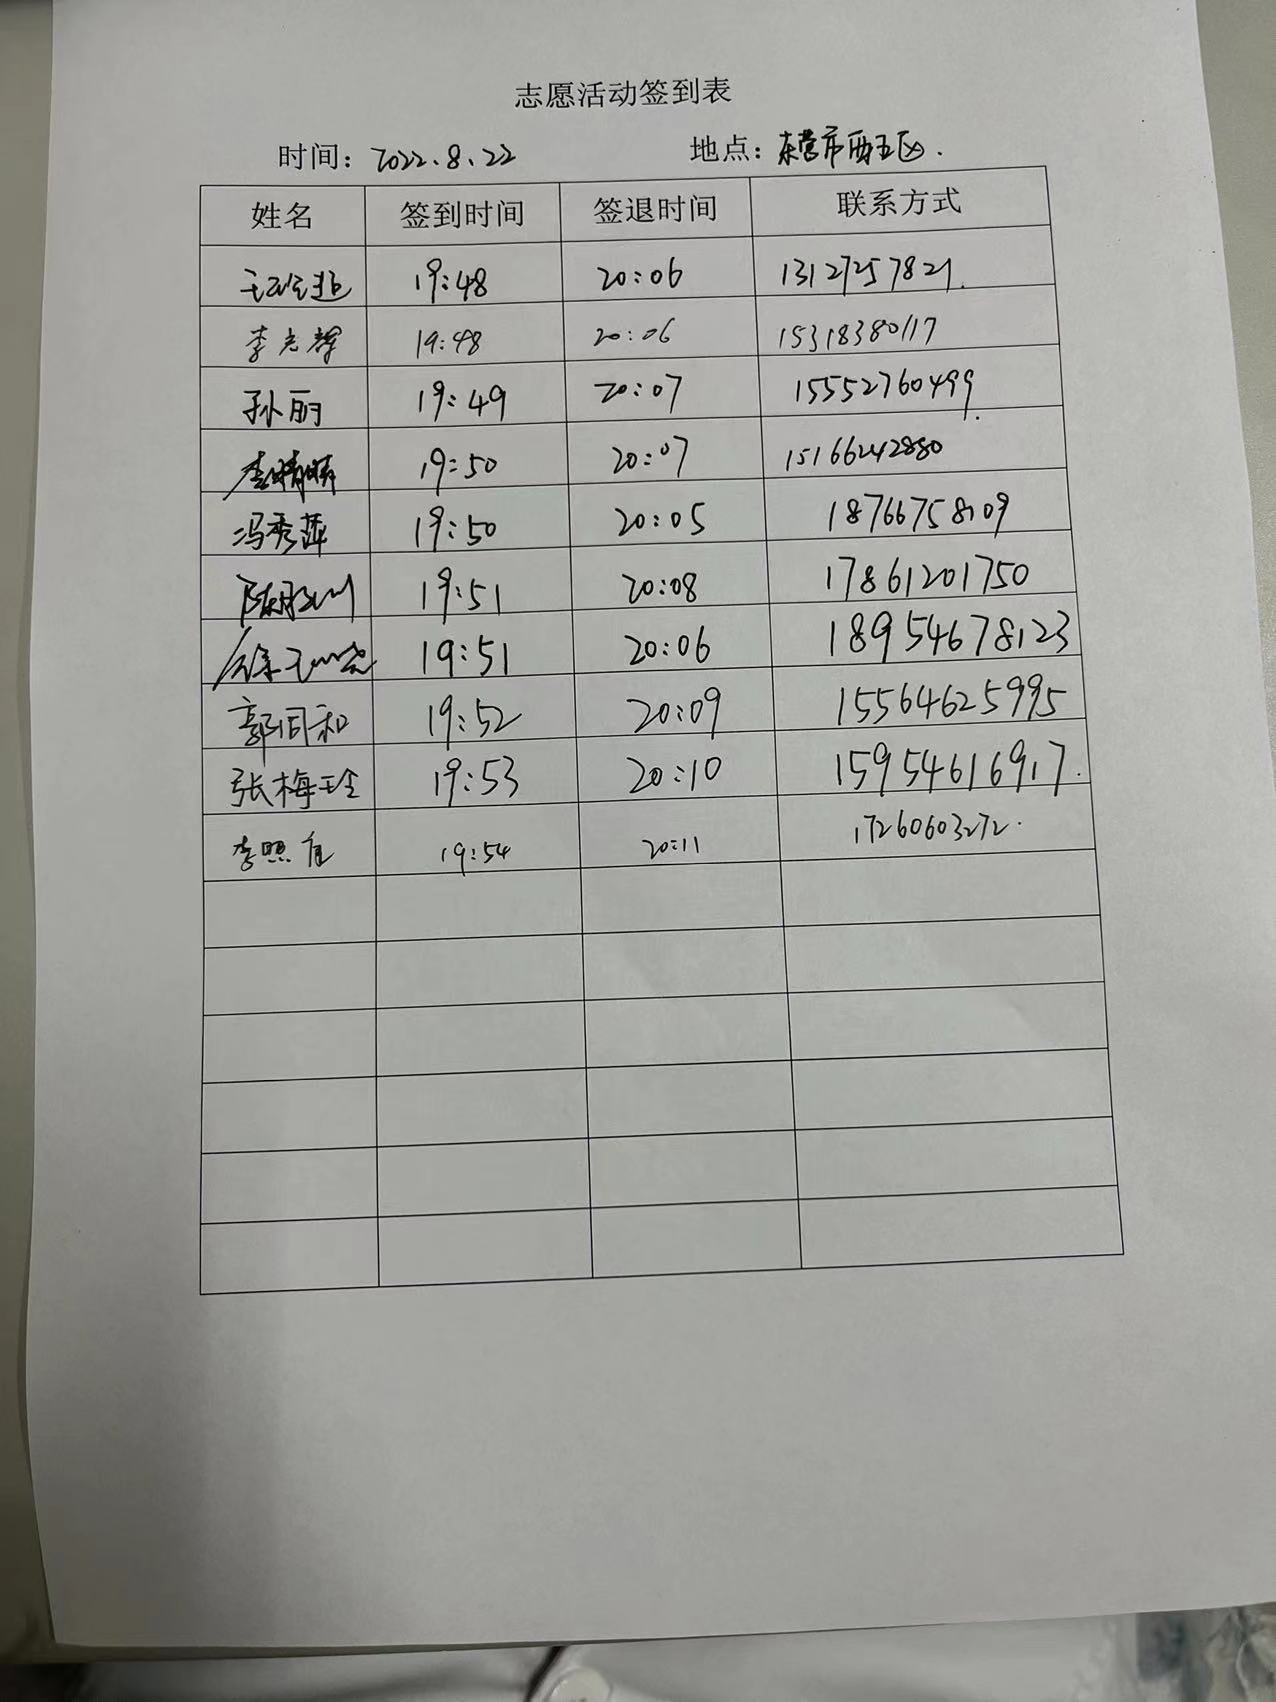 志愿活动签到表
时间：2022.8.22 地点：东营市西五区.
姓名 签到时间 签退时间 联系方式
19:48 20:06 13127257821.
李志辉 19:48 20:06 15318380117
孙丽 19:49 20:07 15552760499.
李晴晴 19:50 20:07 15166242880
冯秀萍 19:50 20:05 18766758109
19:51 20:08 17861201750
19:51 20:06 18954678123
郭同和 19:52 20:09 15564625995
张梅玲 19:53 20:10 15954616917.
19:54 20:11 17260603272.